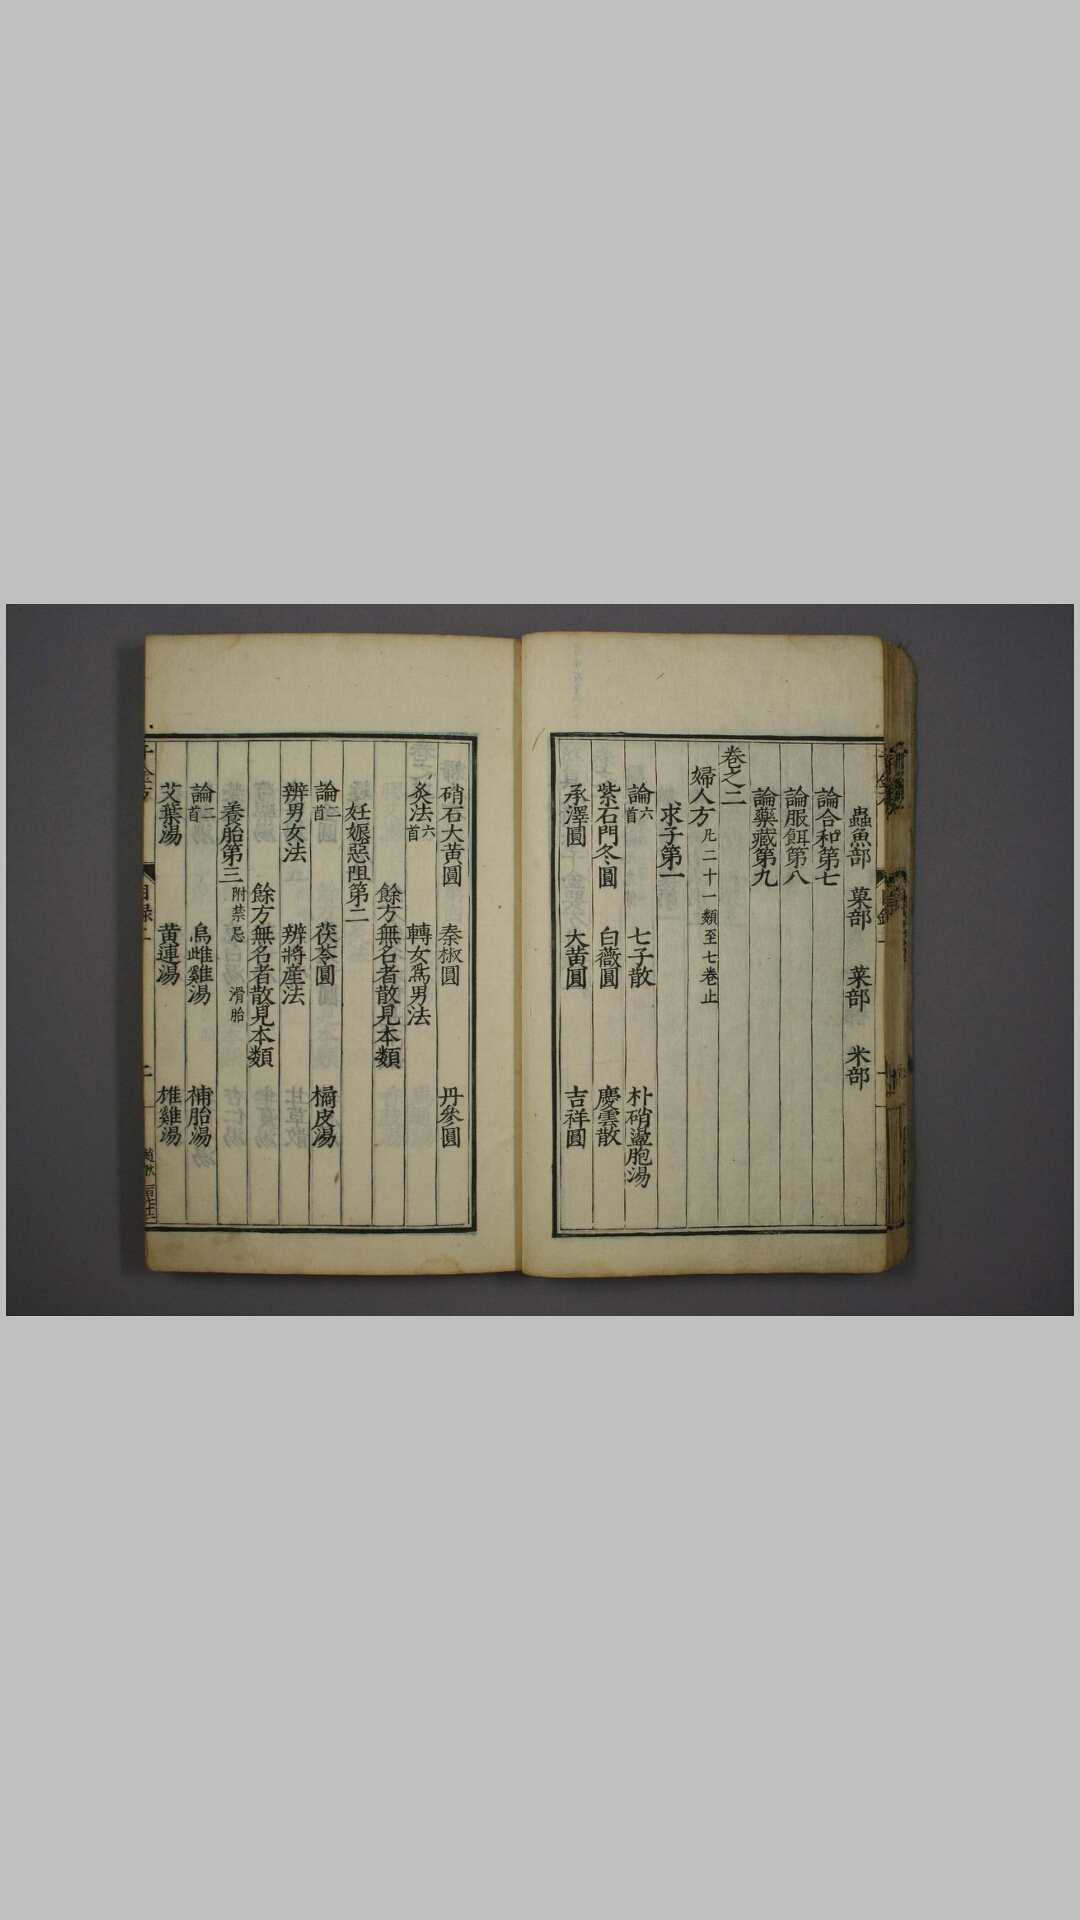 蟲魚部 菓部 菜部 米部
論合和第七
論服餌第八
論藥藏第九
卷之二
婦人方凡二十一類至七卷止
求子第一
論六首 七子散 朴硝盪胞湯
紫石門冬圓 白薇圓 慶雲散
承澤圓 大黄圓 吉祥圓
硝石大黄圓 秦椒圓 丹參圓
灸法六首 轉女爲男法
餘方無名者散見本類
妊娠惡阻第二
論二首 茯苓圓 橘皮湯
辨男女法 辨將産法
餘方無名者散見本類
養胎第三附禁忌 滑胎
論二首 烏雌雞湯 補胎湯
艾葉湯 黄連湯 雄雞湯
目録二